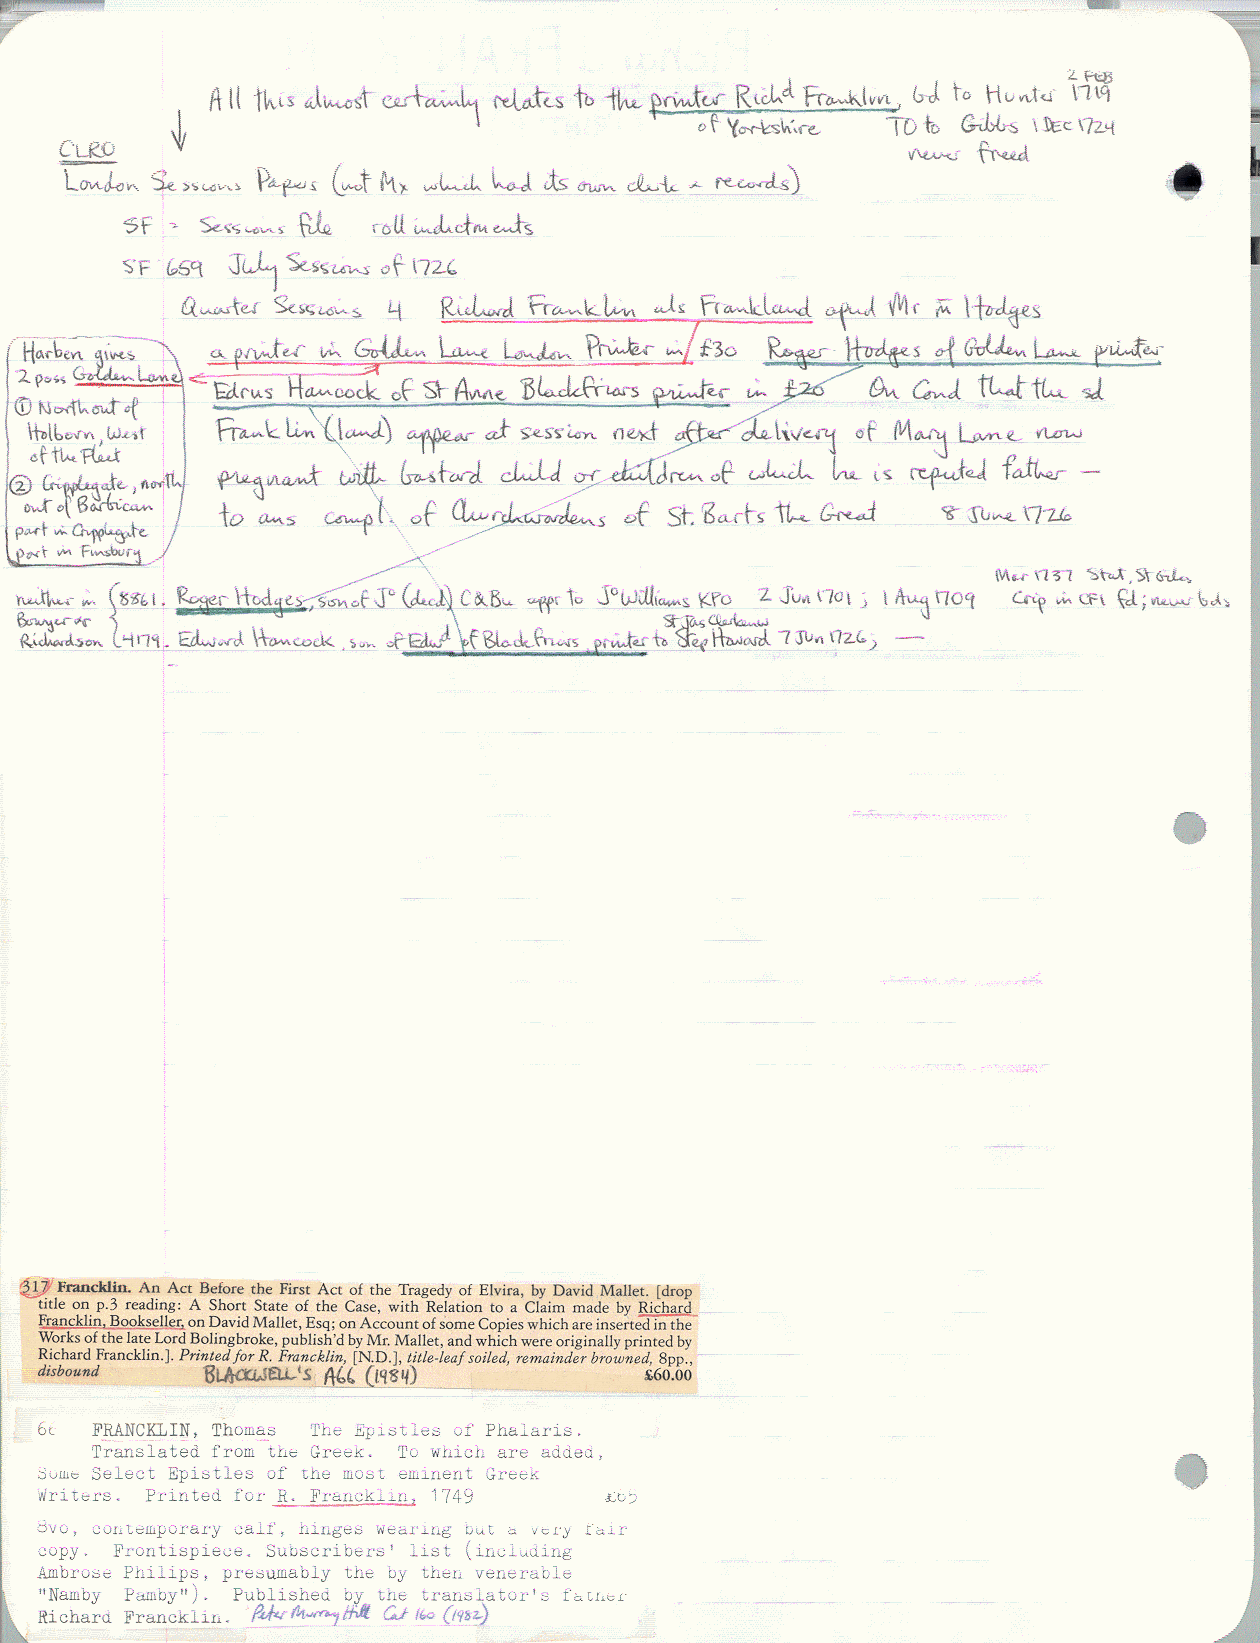 2 FEB
All this almost certainly relates to the printer Richd Francklin, bd to Hunter 1719
of Yorkshire TO to Gibbs 1 DEC 1724
never freed
CLRO
London Sessions Papers (not Mx which had its own clerk & records)
SF = Sessions file roll indictments
SF 659 July Sessions of 1726
Quarter Sessions 4 Richard Franklin als Frankland apud Mr m Hodges
a printer in Golden Lane London Printer in £30 Roger Hodges of Golden Lane printer
Edrus Hancock of St Anne Blackfriars printer in £20 On Cond that the sd
Franklin (land) appear at session next after delivery of Mary Lane now
pregnant with bastard child or children of which he is reputed father —
to ans compl. of Churchwardens of St. Barts the Great 8 June 1726
Harben gives
2 poss Golden Lane
① North out of
Holborn, West
of the Fleet
② Cripplegate, north
out of Barbican
part in Cripplegate
part in Finsbury
Mar 1737 Stat, St Giles
neither in { 8861. Roger Hodges, son of Jo (decd) C&Bu appr to Jo Williams KPO 2 Jun 1701; 1 Aug 1709 Crip in CFI fd; never bds
Bowyer or
St Jas Clerkenw
Richardson 4179. Edward Hancock, son of Edwd of Blackfriars printer to Step Howard 7 Jun 1726; —
317 Francklin. An Act Before the First Act of the Tragedy of Elvira, by David Mallet. [drop
title on p.3 reading: A Short State of the Case, with Relation to a Claim made by Richard
Francklin, Bookseller, on David Mallet, Esq; on Account of some Copies which are inserted in the
Works of the late Lord Bolingbroke, publish'd by Mr. Mallet, and which were originally printed by
Richard Francklin.]. Printed for R. Francklin, [N.D.], title-leaf soiled, remainder browned, 8pp.,
disbound BLACKWELL'S A66 (1984) £60.00
FRANCKLIN, Thomas The Epistles of Phalaris.
Translated from the Greek. To which are added,
Some Select Epistles of the most eminent Greek
Writers. Printed for R. Francklin, 1749 £65
8vo, contemporary calf, hinges wearing but a very fair
copy. Frontispiece. Subscribers' list (including
Ambrose Philips, presumably the by then venerable
"Namby Pamby"). Published by the translator's father
Richard Francklin. Peter Murray Hill Cat 160 (1982)